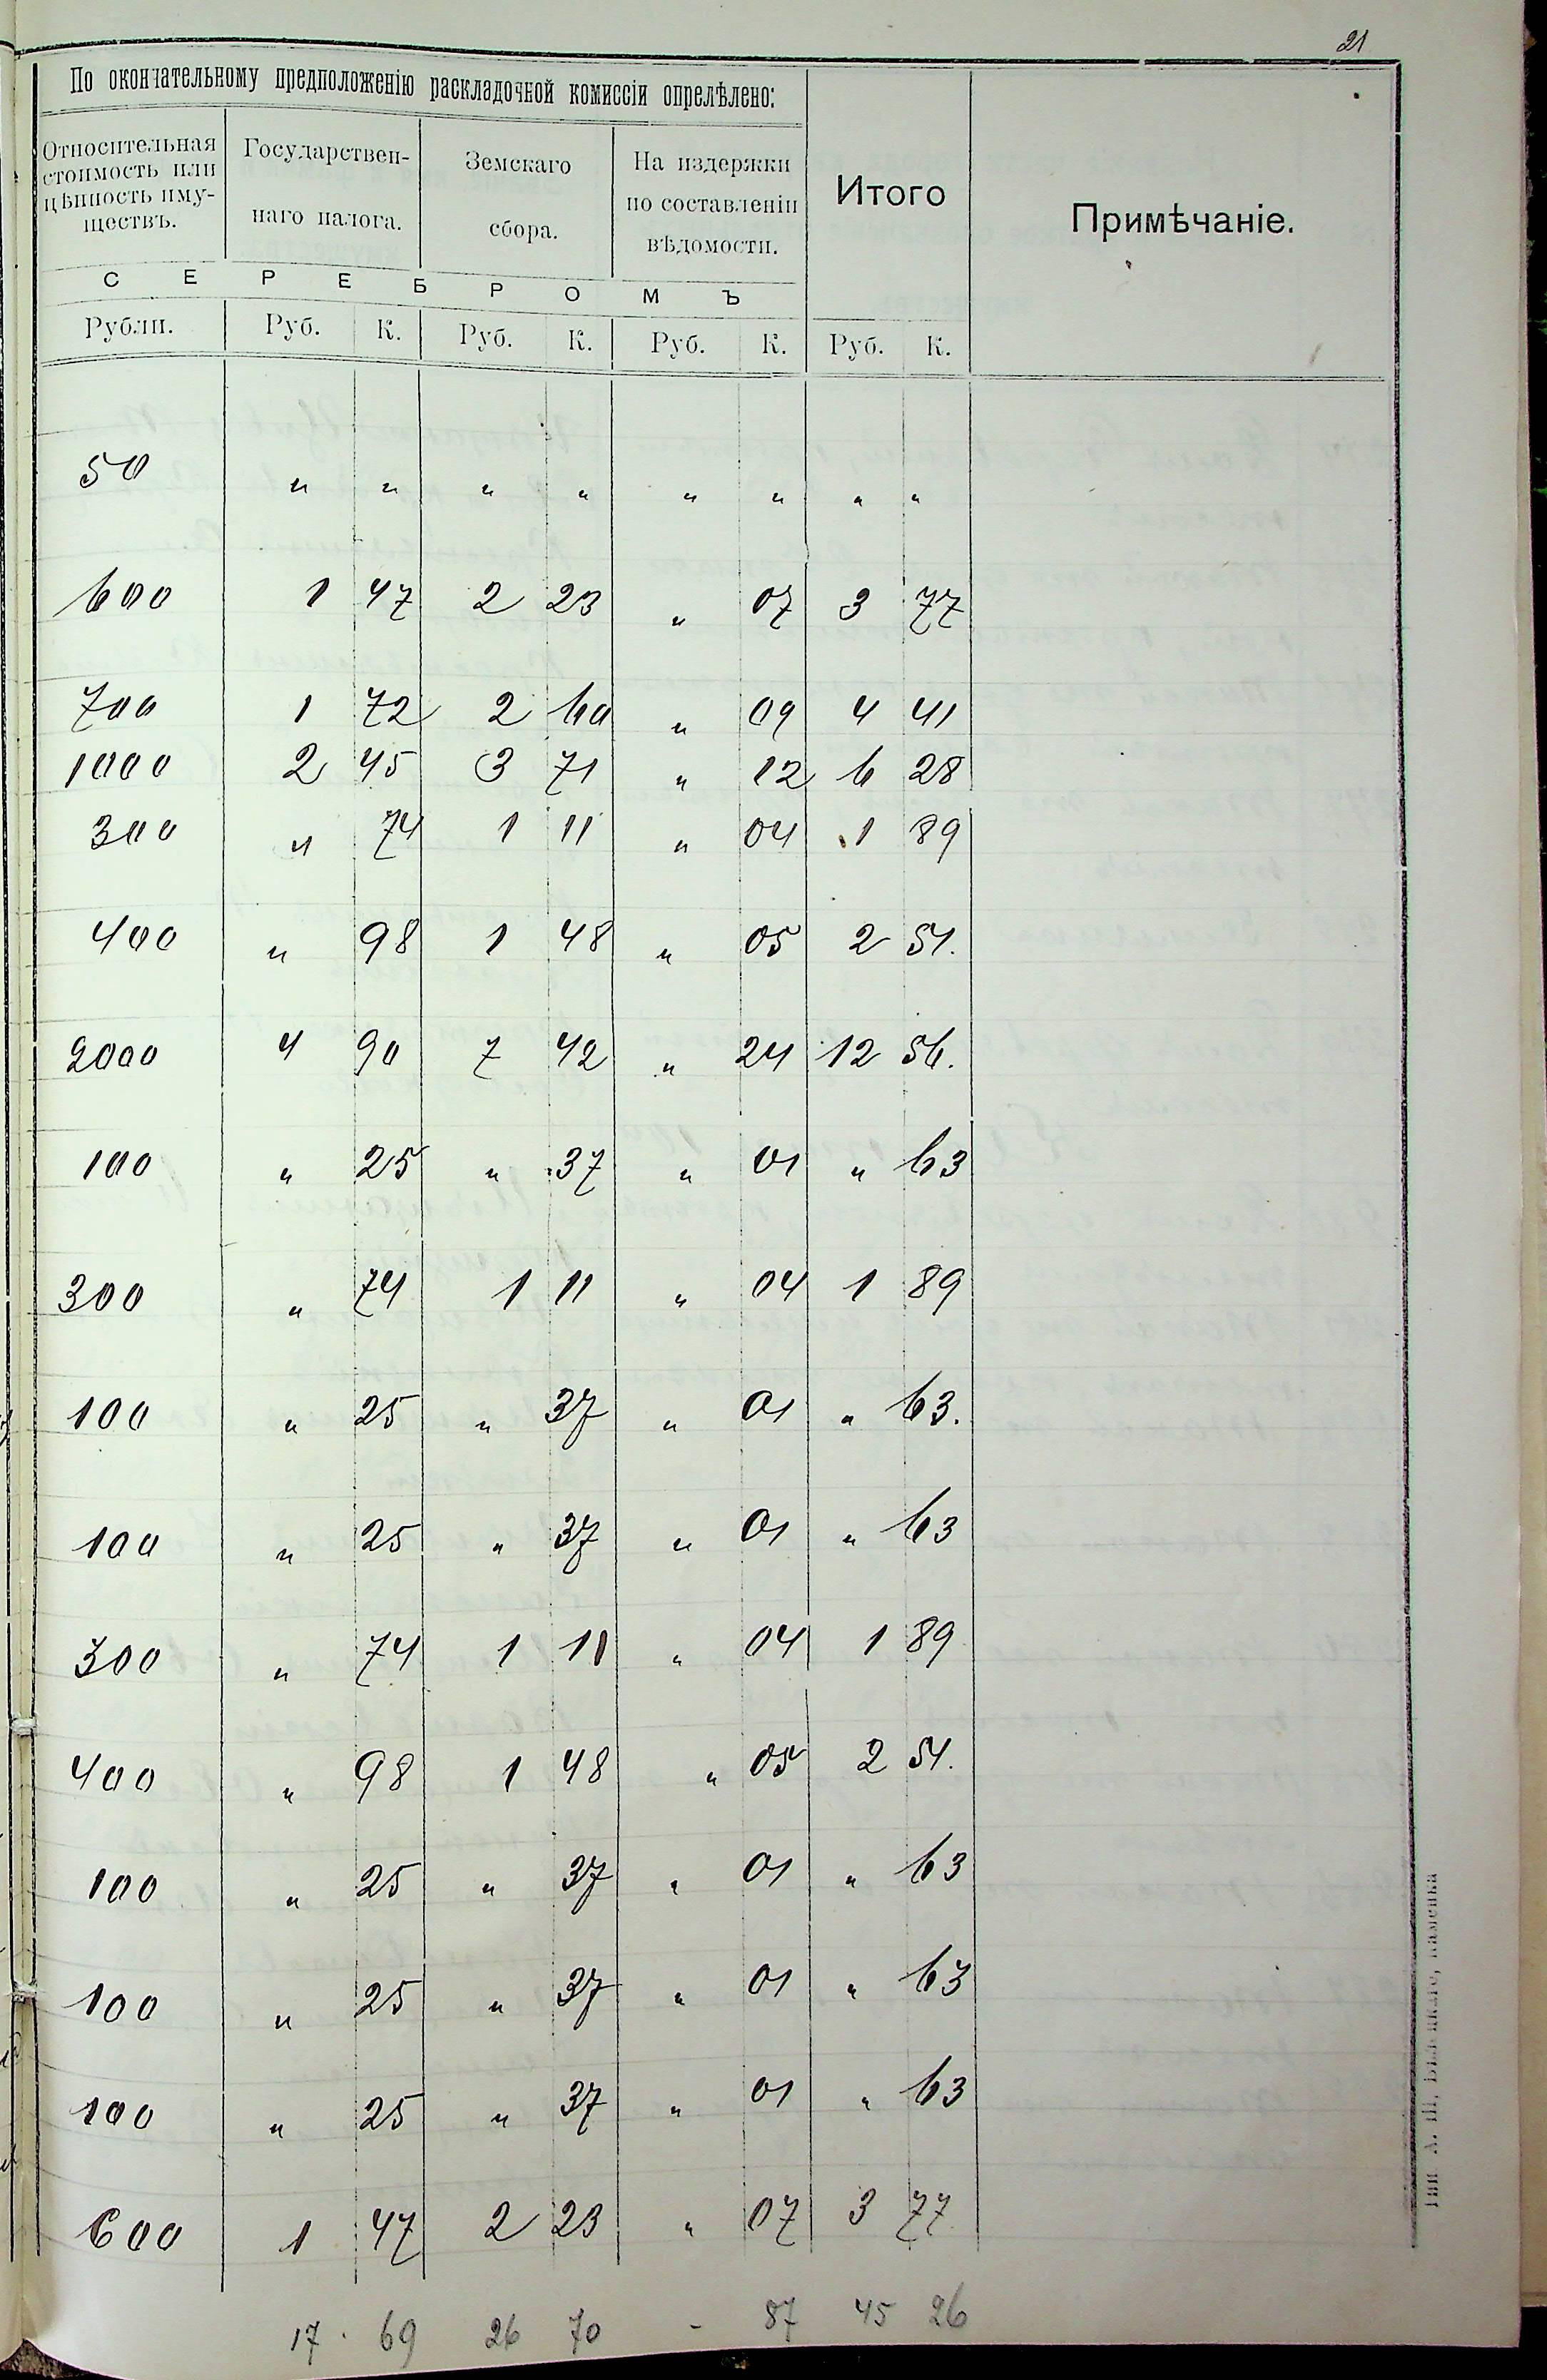 21
По окончательному предположенію раскладочной комиссіи опредѣлено:
Относительная стоимость или цѣнность имуществъ.
Государственнаго налога.
Земскаго сбора.
На издержки по составленіи вѣдомости.
Итого
Примѣчаніе.
С Е Р Е Б Р О М Ъ
Рубли. Руб. К. Руб. К. Руб. К. Руб. К.
50 " " " " " " " "
600 1 47 2 23 " 07 3 77
700 1 72 2 60 " 09 4 41
1000 2 45 3 71 " 12 6 28
300 " 74 1 11 " 04 1 89
400 " 98 1 48 " 05 2 51.
2000 4 90 7 42 " 24 12 56.
100 " 25 " 37 " 01 " 63
300 " 74 1 11 " 04 1 89
100 " 25 " 37 " 01 " 63.
100 " 25 " 37 " 01 " 63
300 " 74 1 11 " 04 1 89
400 " 98 1 48 " 05 2 51.
100 " 25 " 37 " 01 " 63
100 " 25 " 37 " 01 " 63
100 " 25 " 37 " 01 " 63
600 1 47 2 23 " 07 3 77
17 . 69 26 70 - 87 45 26